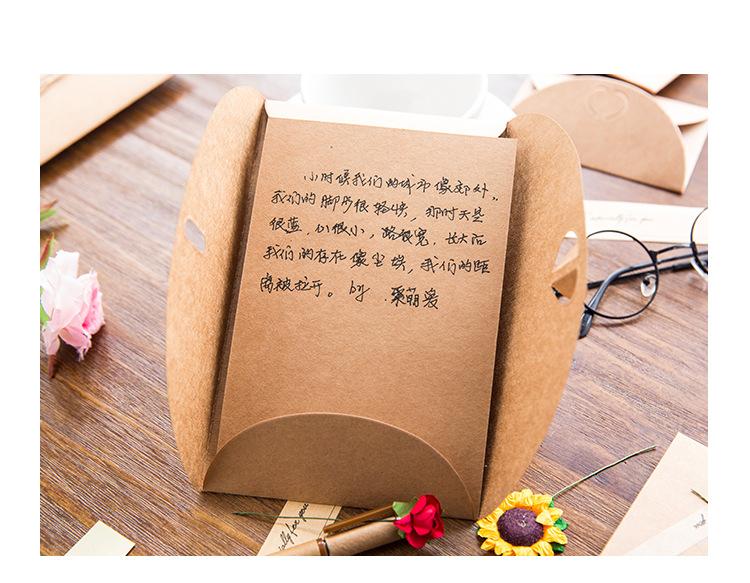 小时候我们的城市像郊外。
我们的脚步很轻快，那时天是
很蓝，心很小，路很宽，长大后
我们的存在像尘埃，我们的距
离被拉开。by.
especially for you
ially for you